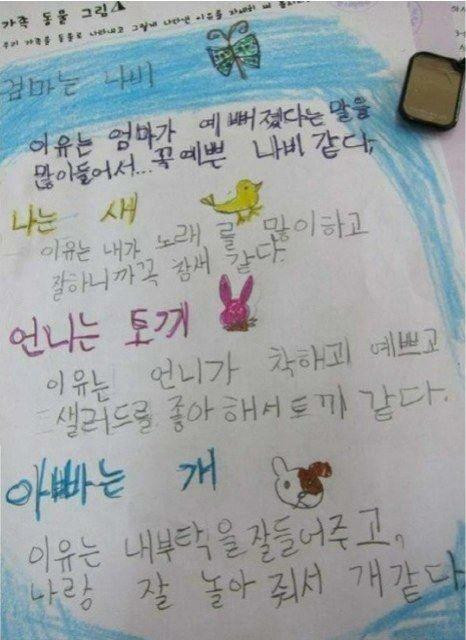 가족 동물 그림
우리 가족을 동물로 나타내고 그렇게 나타낸 이유를 자세히 써
엄마는 나비
이유는 엄마가 예뻐졌다는 말을
많이들어서... 꼭 예쁜 나비 같다.
나는 새
이유는 내가 노래 를 많이하고
잘하니까꼭 참새 같다.
언니는 토끼
이유는 언니가 착해고 예쁘고
샐러드를 좋아해서토끼 같다.
아빠는 개
이유는 내부탁을잘들어주고,
나랑 잘 놀아 줘서 개같다